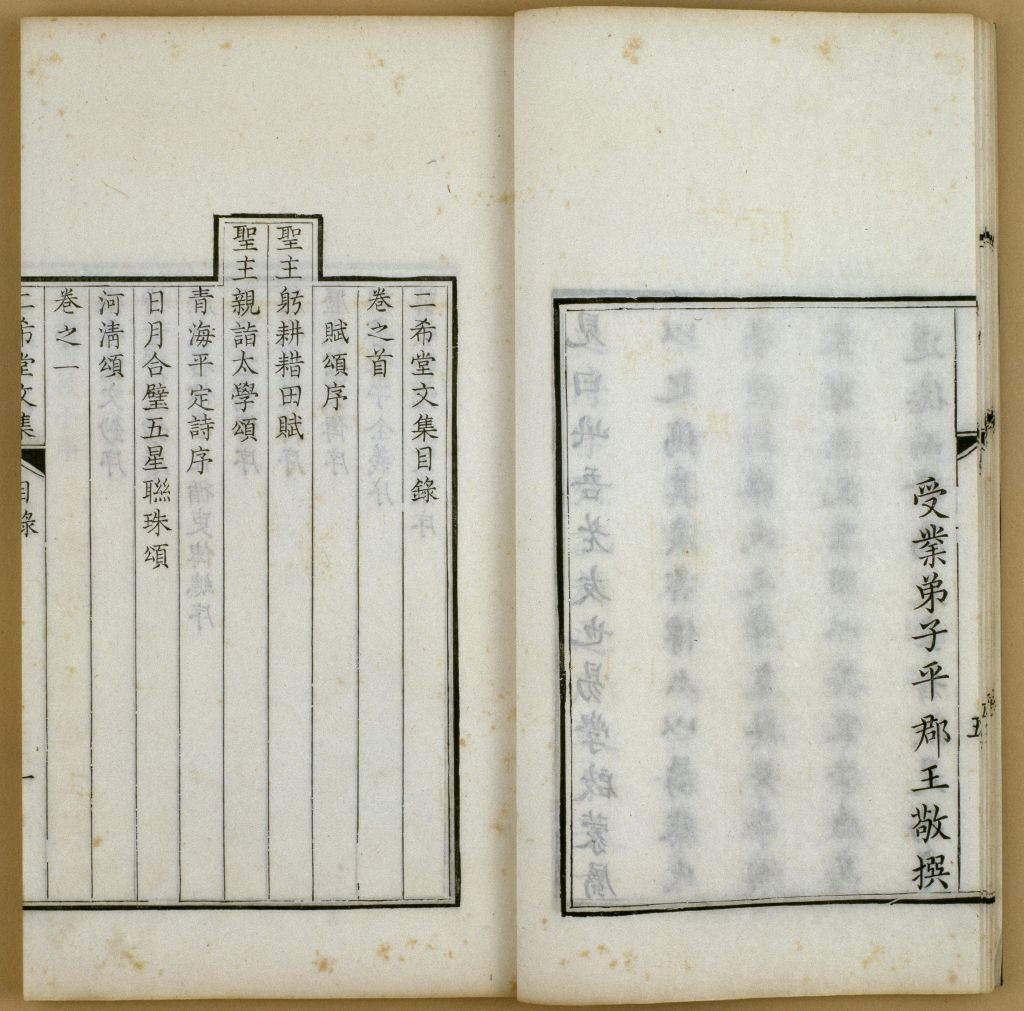 受業弟子平郡王敬撰
五
二希堂文集目錄
卷之首
賦頌序
聖主躬耕耤田賦
聖主親詣太學頌
青海平定詩序
日月合璧五星聯珠頌
河清頌
卷之一
二希堂文集
目錄
一